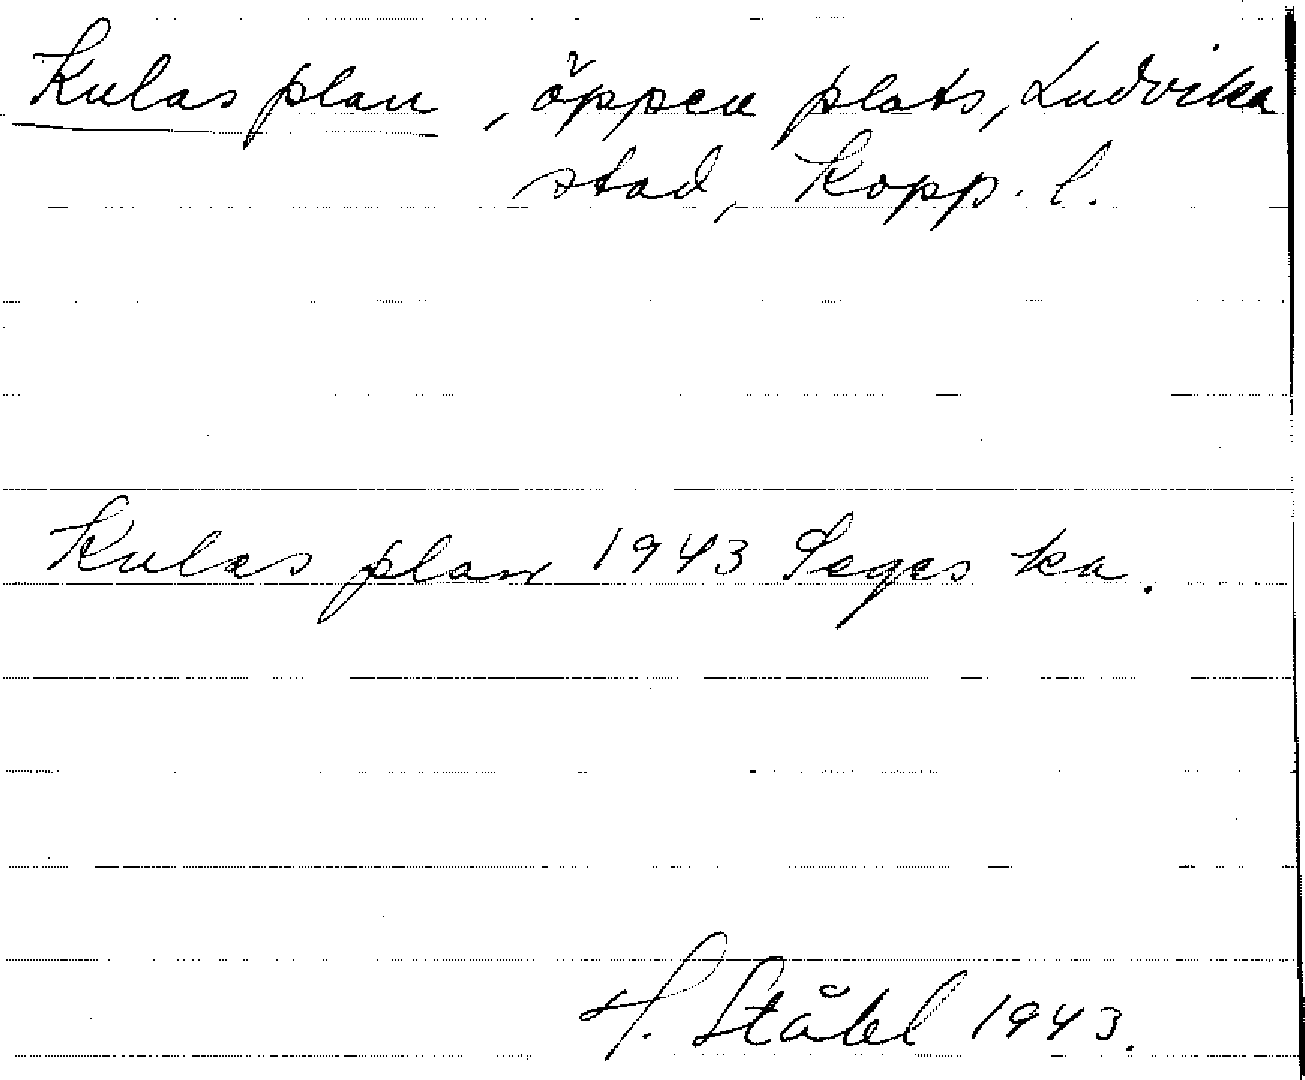 Kulas plan, öppen plats, Ludvika
stad, Kopp. l.
Kulas plan 1943 Seges ka.
H. Ståhl 1943.